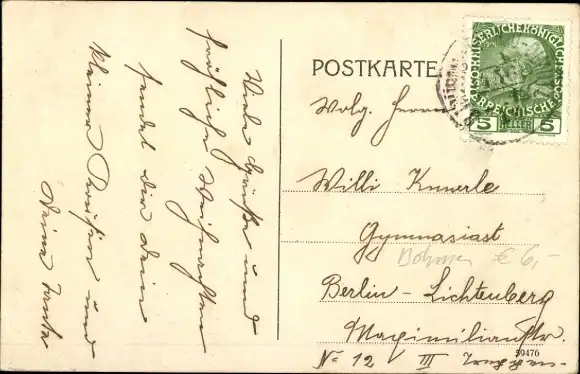 Viele Grüße und
fröhliche Weihnachten
sendet dir dein
kleiner und
Deine Tante
POSTKARTE
Wolg. Herrn
Willi Knuerle
Gymnasiast
Böhmen € 6,-
Berlin - Lichtenberg
Maximilianstr.
59476
No 12 III
KAISERLICHE KÖNIGLICHE
ÖSTERREICHISCHE
5 HELLER 5